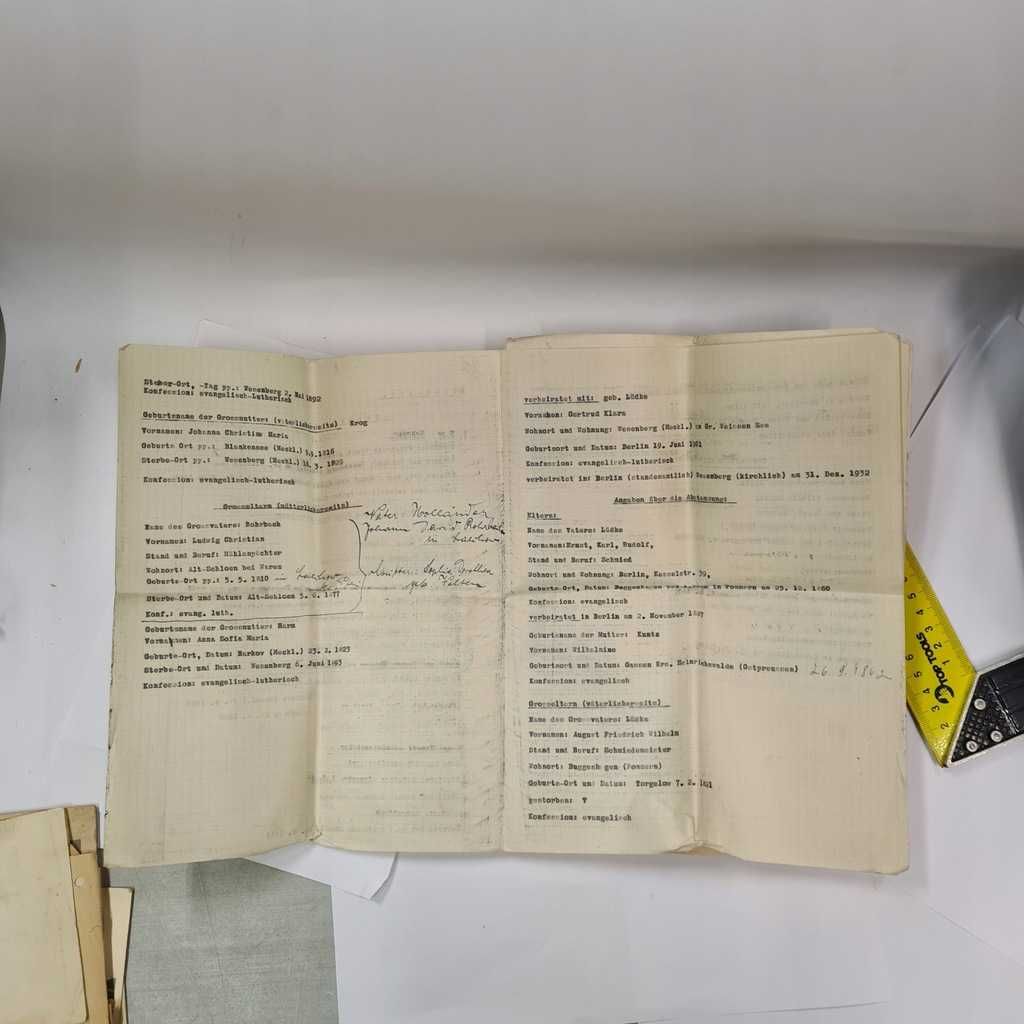 Sterbe-Ort, -Tag pp.: Wesenberg 2. Mai 1892
Konfession: evangelisch-lutherisch
Geburtsname der Grossmutter: (väterlicherseits) Krog
Vornamen: Johanna Christine Maria
Geburts Ort pp.: Blankensee (Meckl.) 1816
Sterbe-Ort pp.: Wesenberg (Meckl.) 3.
Konfession: evangelisch-lutherisch
Grosseltern (mütterlicherseits)
Name des Grossvaters: Rohrbach
Vornamen: Ludwig Christian
Stand und Beruf: Mühlenpächter
Wohnort: Alt-Schloen bei Waren
Geburts-Ort pp.: 5. 5. 1810 in
Sterbe-Ort und Datum: Alt-Schloen 1877
Konf.: evang. luth.
Vater: Holländer
Johann David Rohrbach
in
Mutter: Sophia Dorothea
geb.
Geburtsname der Grossmutter: Harm
Vornamen: Anna Sofia Maria
Geburts-Ort, Datum: Barkov (Meckl.) 23. 2. 1823
Sterbe-Ort und Datum: Wesenberg 6. Juni
Konfession: evangelisch-lutherisch
verheiratet mit: geb. Lüdke
Vornamen: Gertrud Klara
Wohnort und Wohnung: Wesenberg (Meckl.) Gr. Weissen See
Geburtsort und Datum: Berlin 19. Juni
Konfession: evangelisch-lutherisch
verheiratet in: Berlin (standesamtlich) Wesenberg (kirchlich) am 31. Dez. 1932
Angaben über die Abstammung:
Eltern:
Name des Vaters: Lüdke
Vornamen: Ernst, Karl, Rudolf,
Stand und Beruf: Schmied
Wohnort und Wohnung: Berlin, 39,
Geburts-Ort, Datum: in Pommern am 1860
Konfession: evangelisch
verheiratet in Berlin am 2. November
Geburtsname der Mutter: Kuntz
Vornamen: Wilhelmine
Geburtsort und Datum: Krs. Heinrichswalde (Ostpreussen)
Konfession: evangelisch
Grosseltern (väterlicherseits)
Name des Grossvaters: Lüdke
Vornamen: August Friedrich Wilhelm
Stand und Beruf: Schmiedemeister
Wohnort: (Pommern)
Geburts-Ort und Datum: Torgelow 7. 2.
gestorben: ?
Konfession: evangelisch
TOP TOOLS